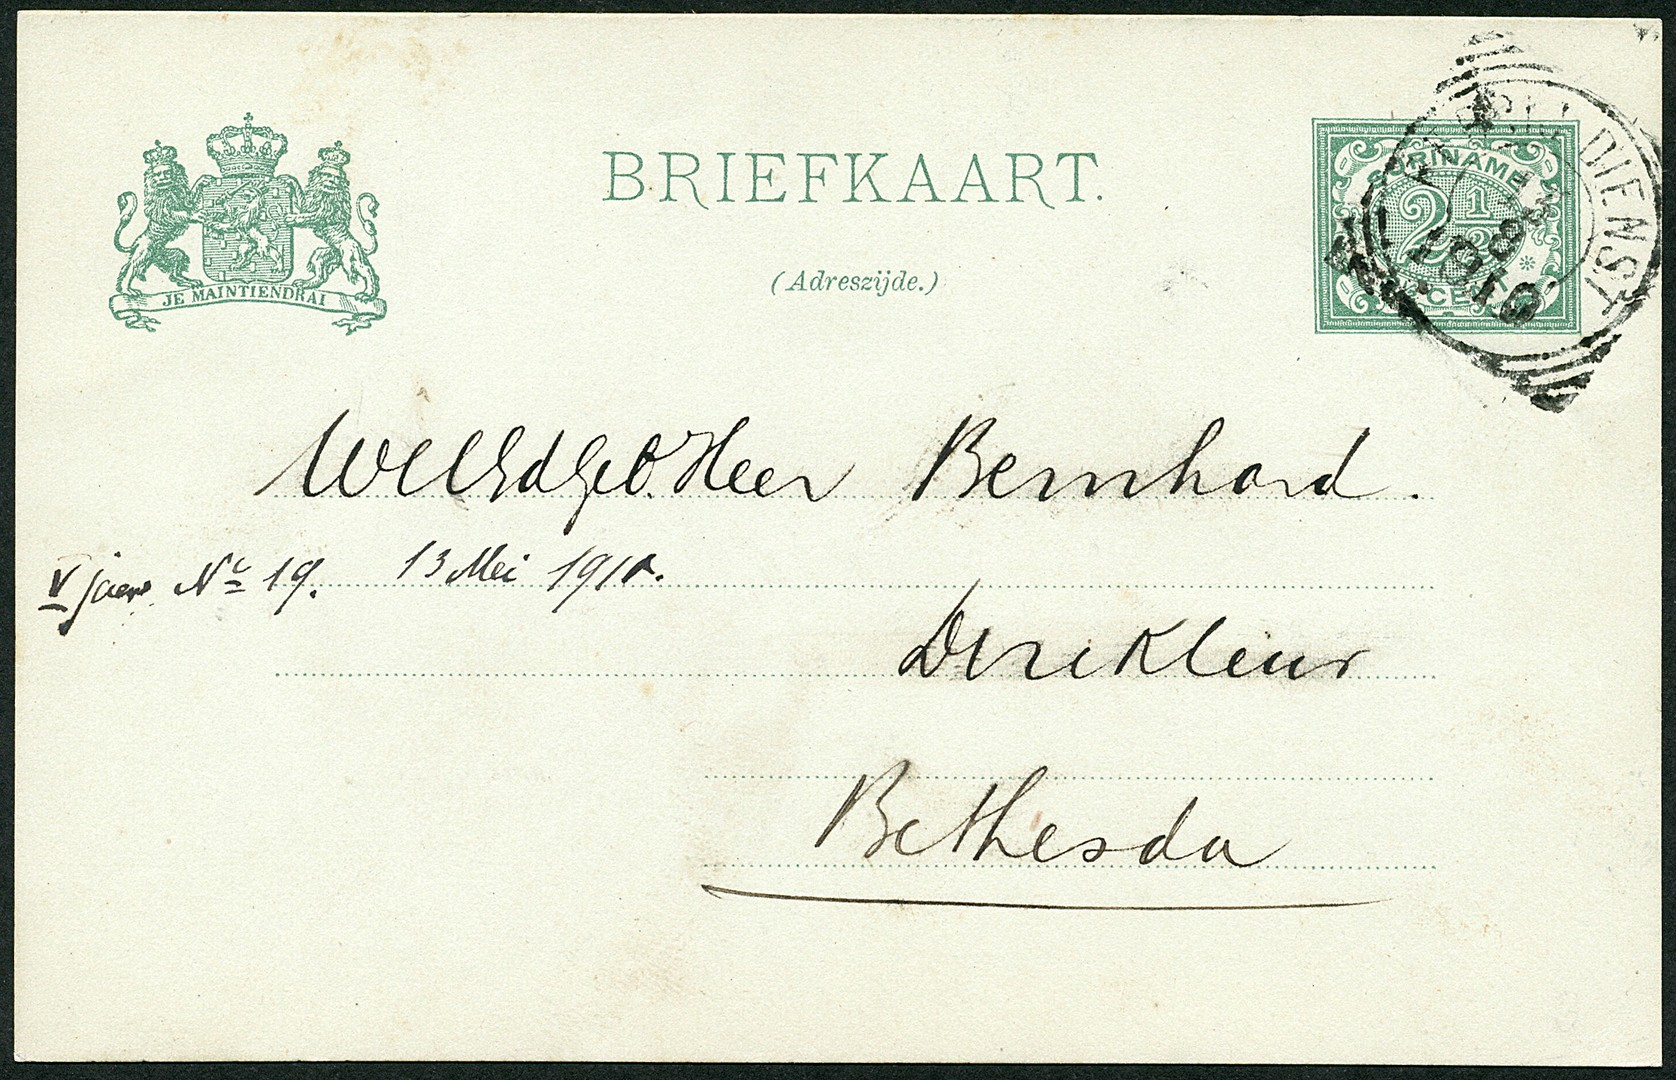 BRIEFKAART.
(Adreszijde.)
JE MAINTIENDRAI
SURINAME
2 1/2
CENT
DIENST
1910
WelEdGeb. Heer Bernhard.
V No 19. 13 Mei 1910.
Direkteur
Bethesda